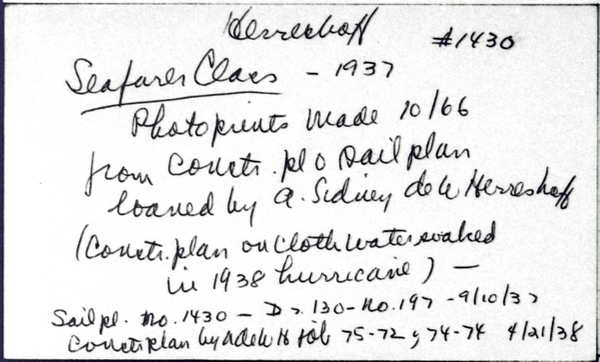 Herreshoff #1430
Seafarer Class - 1937
Photoprints made 10/66
from constr. pl & sail plan
loaned by A. Sidney deW Herreshoff
(Constr. plan on cloth water soaked
in 1938 hurricane) —
Sail pl. no. 1430 - Dr. 130-No. 197 - 9/10/37
Constr plan by AdeW H 75-72 y 74-74 4/21/38